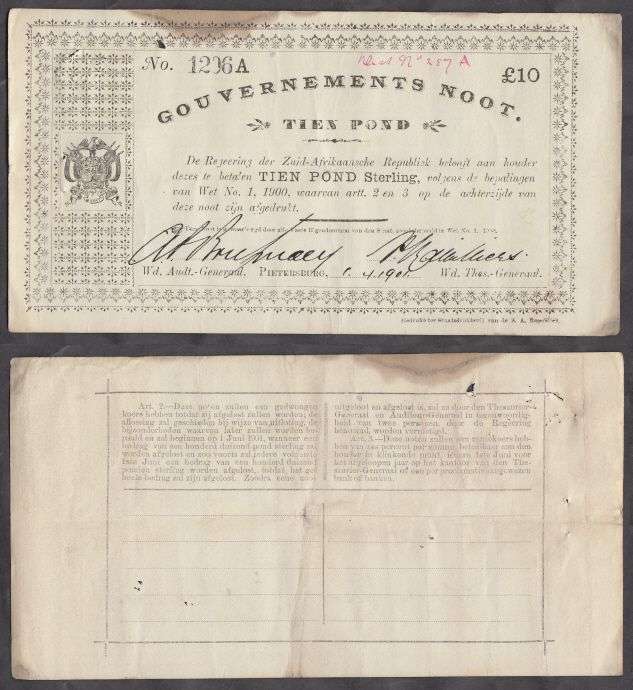 No. 1296A
No 257 A
£10
GOUVERNEMENTS NOOT.
TIEN POND
De Regeering der Zuid-Afrikaansche Republiek belooft aan houder
dezes te betalen TIEN POND Sterling, volgens de bepalingen
van Wet No. 1, 1900, waarvan artt. 2 en 3 op de achterzijde van
deze noot zijn afgedrukt.
Wd. Audt.-Generaal. PIETERSBURG, 1.4.1901 Wd. Thes.-Generaal.
Gedrukt ter Staatsdrukkerij van de Z. A. Republiek.
Art. 2.—Deze noten zullen een gedwongen
koers hebben totdat zij afgelost zullen worden; de
aflossing zal geschieden bij wijze van uitloting, de
bijzonderheden waarvan later zullen worden be-
paald en zal beginnen op 1 Juni 1901, wanneer een
bedrag van een honderd duizend pond sterling zal
worden afgelost en zoo voorts zal iedere volgende
1ste Juni een bedrag van een honderd duizend
ponden sterling worden afgelost, totdat het ge-
heele bedrag zal zijn afgelost. Zoodra eene noot
uitgeloot en afgelost is, zal ze door den Thesaurier-
Generaal en Auditeur-Generaal in tegenwoordig-
heid van twee personen, door de Regeering
benoemd, worden vernietigd.
Art. 3.—Deze noten zullen een
van zes percent per annum, betaalbaar aan den
houder in klinkende munt, iederen 1sten Juni voor
het afgeloopen jaar op het kantoor van den The-
saurier-Generaal of een per proclamatie aangewezen
bank of banken.